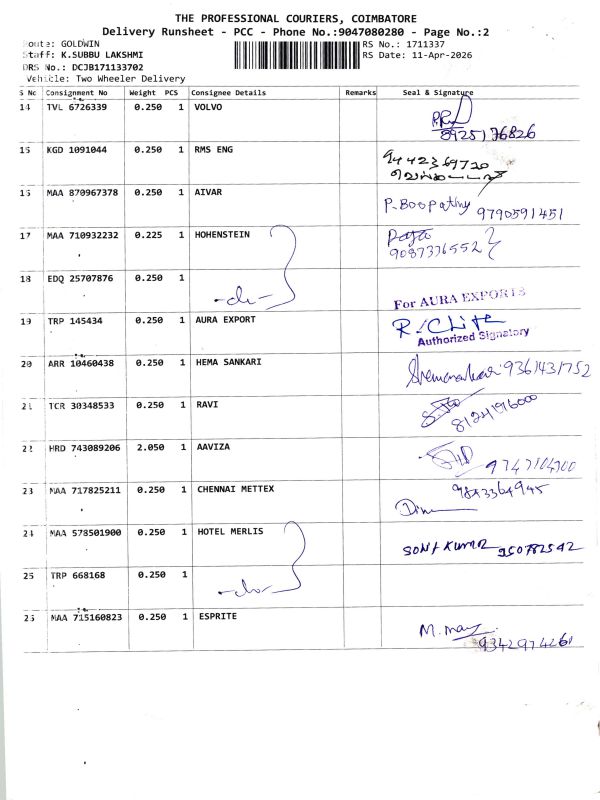 THE PROFESSIONAL COURIERS, COIMBATORE
Delivery Runsheet - PCC - Phone No.:9047080280 - Page No.:2
Route: GOLDWIN RS No.: 1711337
Staff: K.SUBBU LAKSHMI RS Date: 11-Apr-2026
DRS No.: DCJB171133702
Vehicle: Two Wheeler Delivery
S No Consignment No Weight PCS Consignee Details Remarks Seal & Signature
14 TVL 6726339 0.250 1 VOLVO
8925176826
15 KGD 1091044 0.250 1 RMS ENG 9442369720
16 MAA 870967378 0.250 1 AIVAR P. Boopathy 9790591451
17 MAA 710932232 0.225 1 HOHENSTEIN Raja
9087376552
18 EDQ 25707876 0.250 1
-do-
For AURA EXPORTS
19 TRP 145434 0.250 1 AURA EXPORT
Authorized Signatory
20 ARR 10460438 0.250 1 HEMA SANKARI 9361431752
21 TCR 30348533 0.250 1 RAVI
8124196000
22 HRD 743089206 2.050 1 AAVIZA
23 MAA 717825211 0.250 1 CHENNAI METTEX 9843364945
24 MAA 578501900 0.250 1 HOTEL MERLIS SONI KUMAR
25 TRP 668168 0.250 1
-do-
26 MAA 715160823 0.250 1 ESPRITE
9342974261